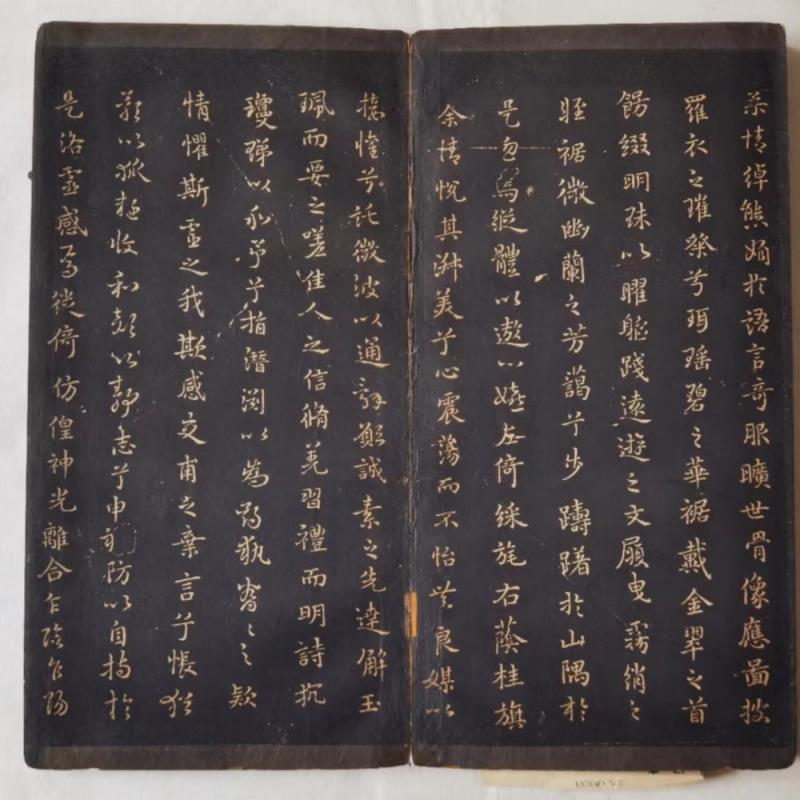 柔情綽態媚於語言奇服曠世骨像應圖披
羅衣之璀粲兮珥瑤碧之華裾戴金翠之首
飾綴明珠以曜軀踐遠遊之文履曳霧綃之
輕裾微幽蘭之芳藹兮步躊躇於山隅於
是忽焉縱體以遨以嬉左倚綵旄右蔭桂旗
余情悅其淑美兮心震蕩而不怡無良媒以
接懽兮託微波以通辭願誠素之先達解玉
珮而要之嗟佳人之信脩羌習禮而明詩抗
瓊珶以和予兮指潛淵以為期執眷〻之款
情懼斯靈之我欺感交甫之棄言兮悵猶
豫以狐疑收和顏以靜志兮申禮防以自持於
是洛靈感焉徙倚仿偟神光離合乍陰乍陽